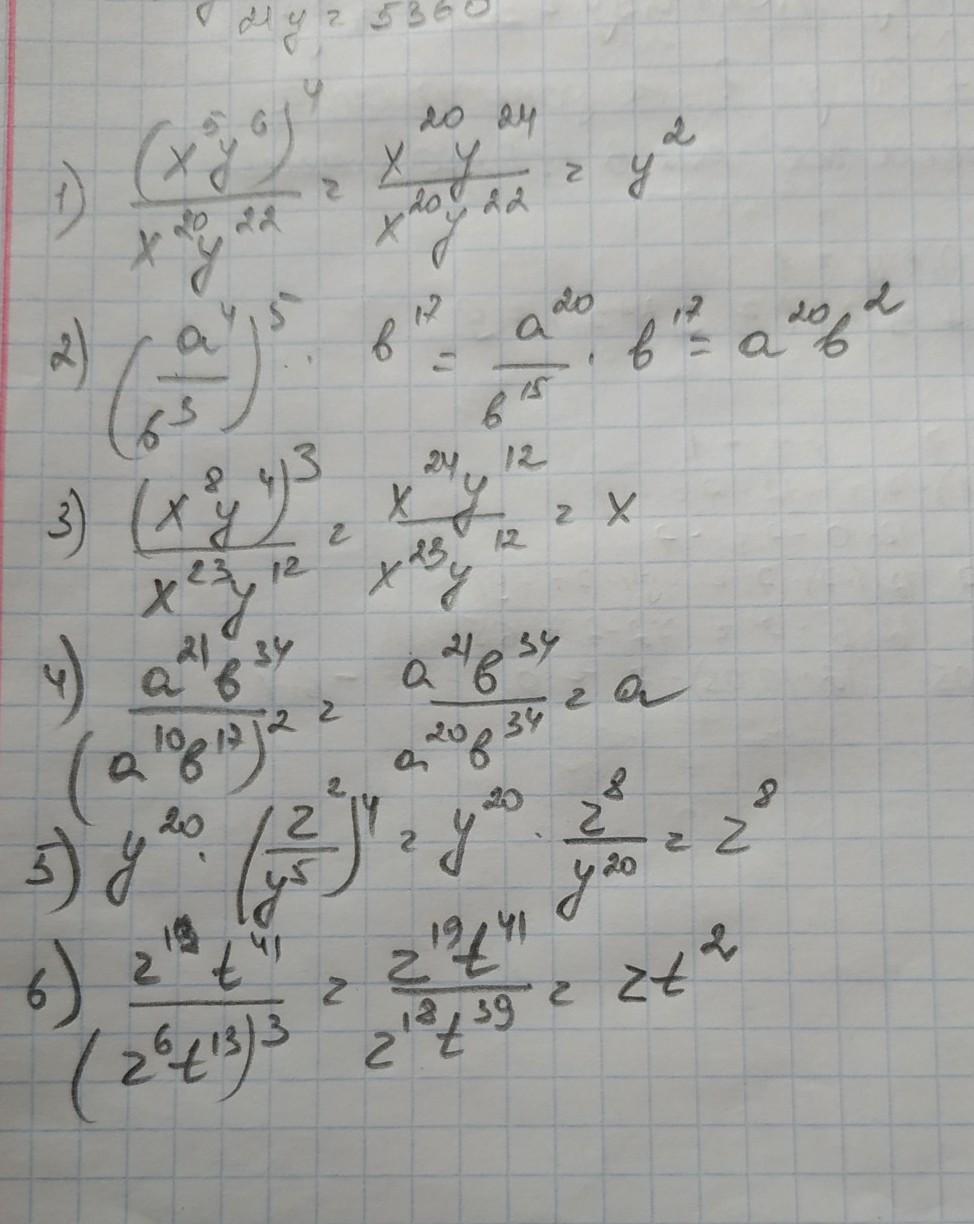 24y = 5360
1) (x^5y^6)^4 / x^20y^22 = x^20y^24 / x^20y^22 = y^2
2) (a^4 / b^3)^5 · b^17 = a^20 / b^15 · b^17 = a^20b^2
3) (x^8y^4)^3 / x^23y^12 = x^24y^12 / x^23y^12 = x
4) a^21b^34 / (a^10b^17)^2 = a^21b^34 / a^20b^34 = a
5) y^20 · (z^2 / y^5)^4 = y^20 · z^8 / y^20 = z^8
6) z^19t^41 / (z^6t^13)^3 = z^19t^41 / z^18t^39 = zt^2